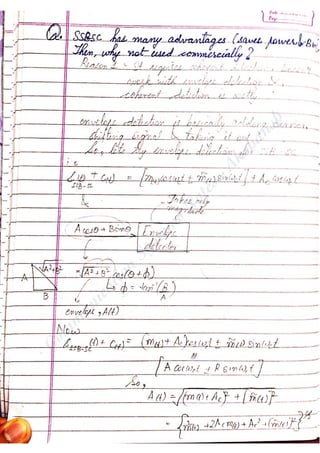 Q. SSBSC has many advantages (saves power &
Then, why not used commercially?
Reason :- It requires coherent
work with envelope detection &
coherent detection is costly
envelope detection is basically adding carrier,
shifting signal & taking it out
So, lets try envelope detection for SSB-SC
i.e
S(t) + C(t) = [m(t) cosω_ct ± m̂(t) sinω_ct] + A_c cosω_ct
SSB-SC
& Takes only
magnitude
A cosθ + B sinθ → Envelope
detector
√A²+B² = √A²+B² cos(θ+ϕ)
A ↳ ϕ = tan⁻¹(B/A)
B
envelope, A(t)
Now
S_SSB-SC(t) + C(t) = (m(t) + A_c) cosω_ct ± m̂(t) sinω_ct
[A cosω_ct ± B sinω_ct]
So,
A(t) = √[m(t) + A_c]² + [m̂(t)]²
= {m²(t) + 2A_c m(t) + A_c² + (m̂(t))²}^1/2